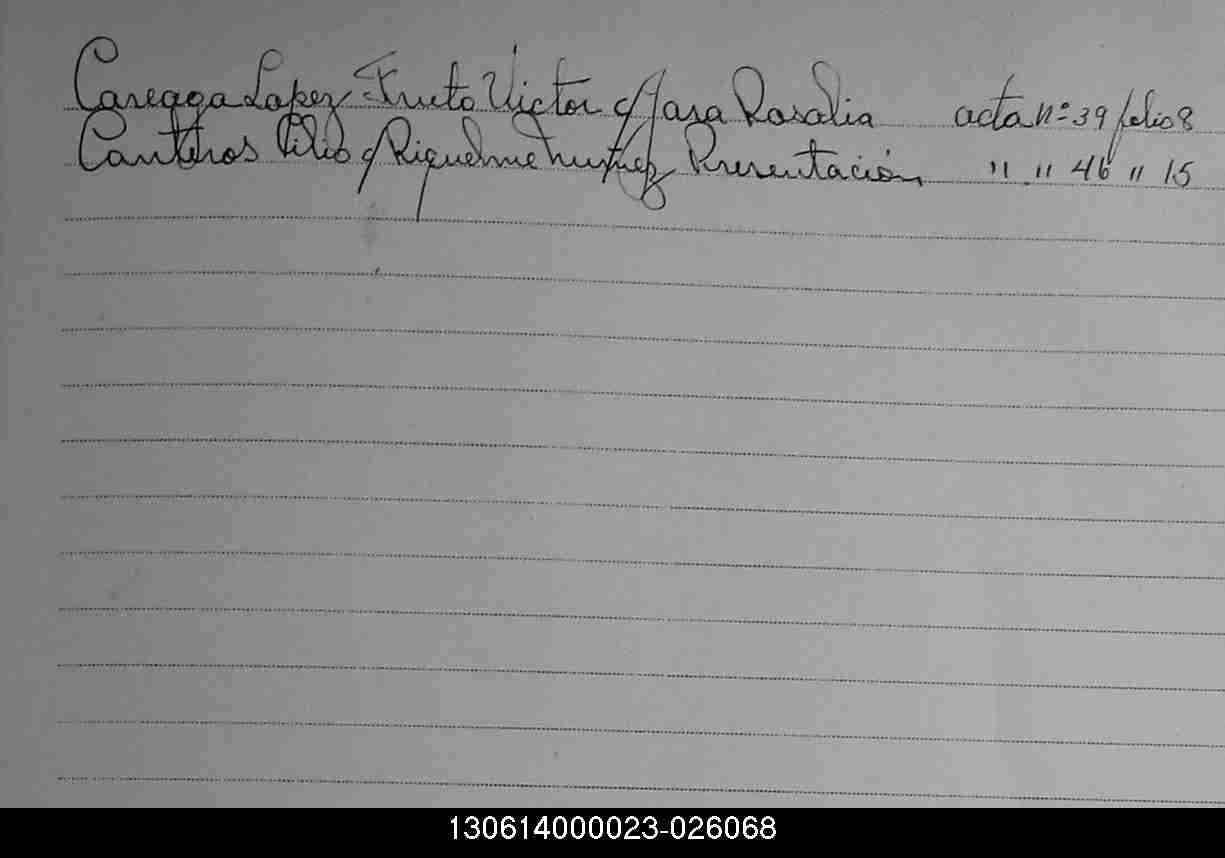 Careaga Lopez Fructo Victor c/ Jara Rosalia acta nº 39 folio 8
Canteros Lilio c/ Riquelme Nuñez Presentación " " 46 " 15
130614000023-026068